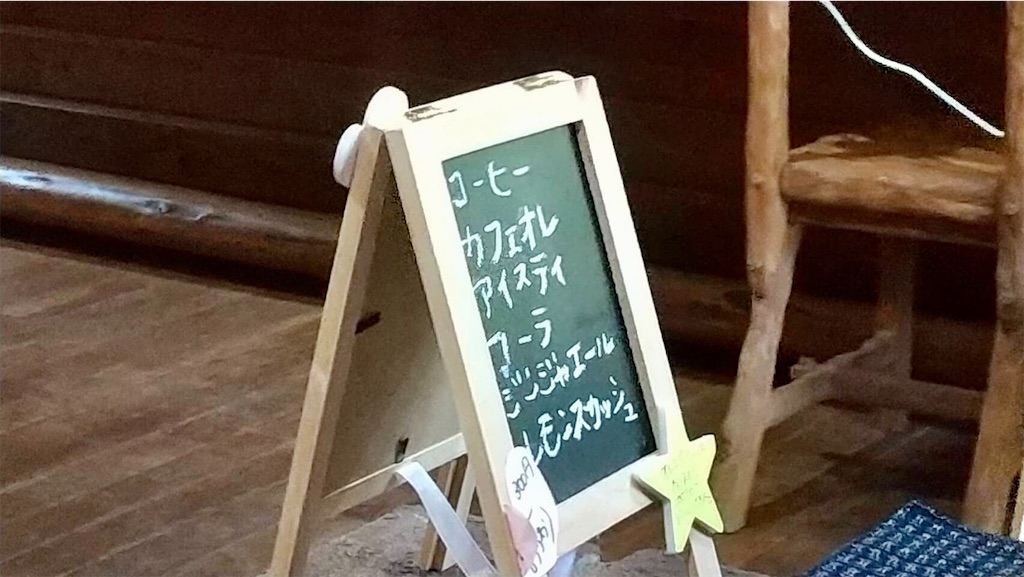 コーヒー
カフェオレ
アイスティ
コーラ
ジンジャエール
レモンスカッシュ